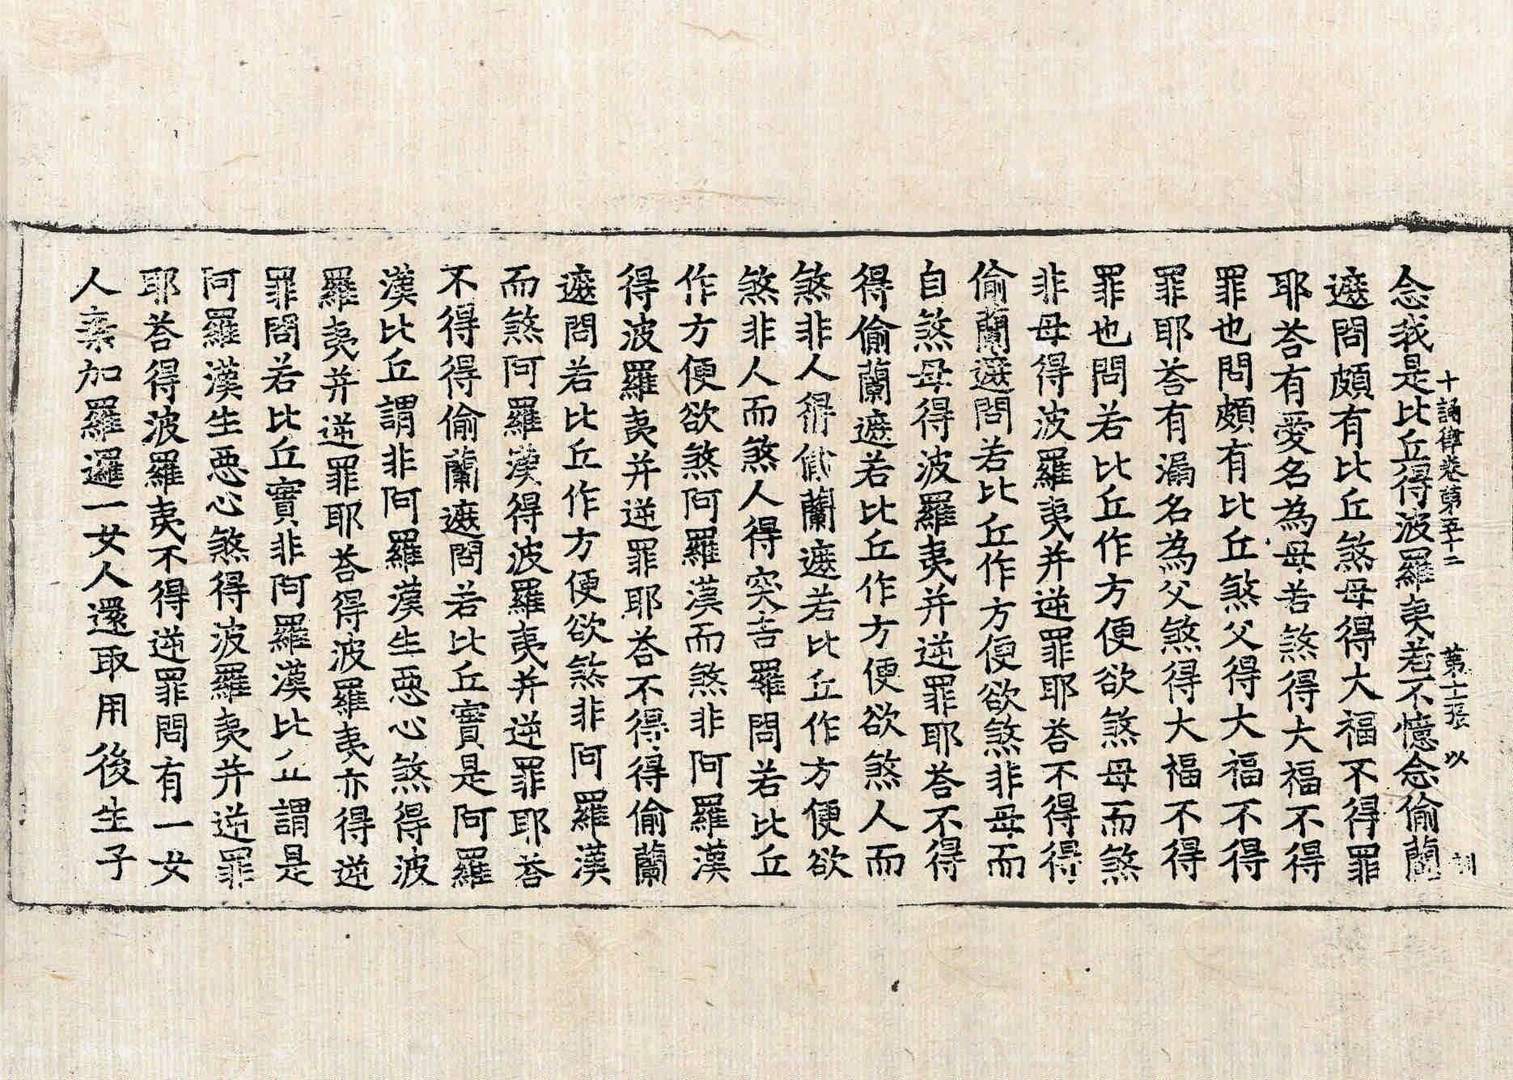 十誦律卷第五十二 第十二張 以
念我是比丘得波羅夷若不憶念偷蘭
遮問頗有比丘煞母得大福不得罪
耶荅有愛名為母若煞得大福不得
罪也問頗有比丘煞父得大福不得
罪耶荅有漏名為父煞得大福不得
罪也問若比丘作方便欲煞母而煞
非母得波羅夷并逆罪耶荅不得得
偷蘭遮問若比丘作方便欲煞非母而
自煞母得波羅夷并逆罪耶荅不得
得偷蘭遮若比丘作方便欲煞人而
煞非人得偷蘭遮若比丘作方便欲
煞非人而煞人得突吉羅問若比丘
作方便欲煞阿羅漢而煞非阿羅漢
得波羅夷并逆罪耶荅不得得偷蘭
遮問若比丘作方便欲煞非阿羅漢
而煞阿羅漢得波羅夷并逆罪耶荅
不得得偷蘭遮問若比丘實是阿羅
漢比丘謂非阿羅漢生惡心煞得波
羅夷并逆罪耶荅得波羅夷亦得逆
罪問若比丘實非阿羅漢比丘謂是
阿羅漢生惡心煞得波羅夷并逆罪
耶荅得波羅夷不得逆罪問有一女
人棄加羅邏一女人還取用後生子